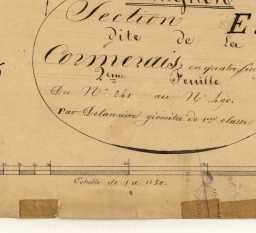 Section E
dite de la
Cormerais en quatre
2ème Feuille
Du N° 261 au N° 490.
Par Delanaire géomètre de 1ère classe
Echelle de 1 à 1250.